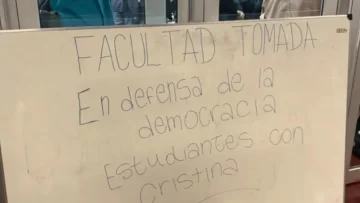 FACULTAD TOMADA
En defensa de la
democracia
Estudiantes con
Cristina